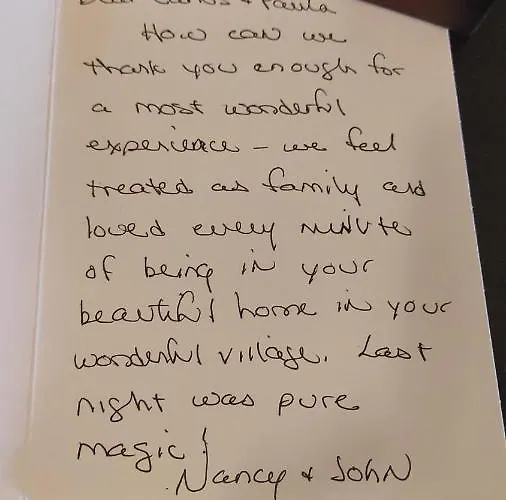 Dear Carlos + Paula
How can we
thank you enough for
a most wonderful
experience – we feel
treated as family and
loved every minute
of being in your
beautiful home in your
wonderful village. Last
night was pure
magic!
Nancy + John